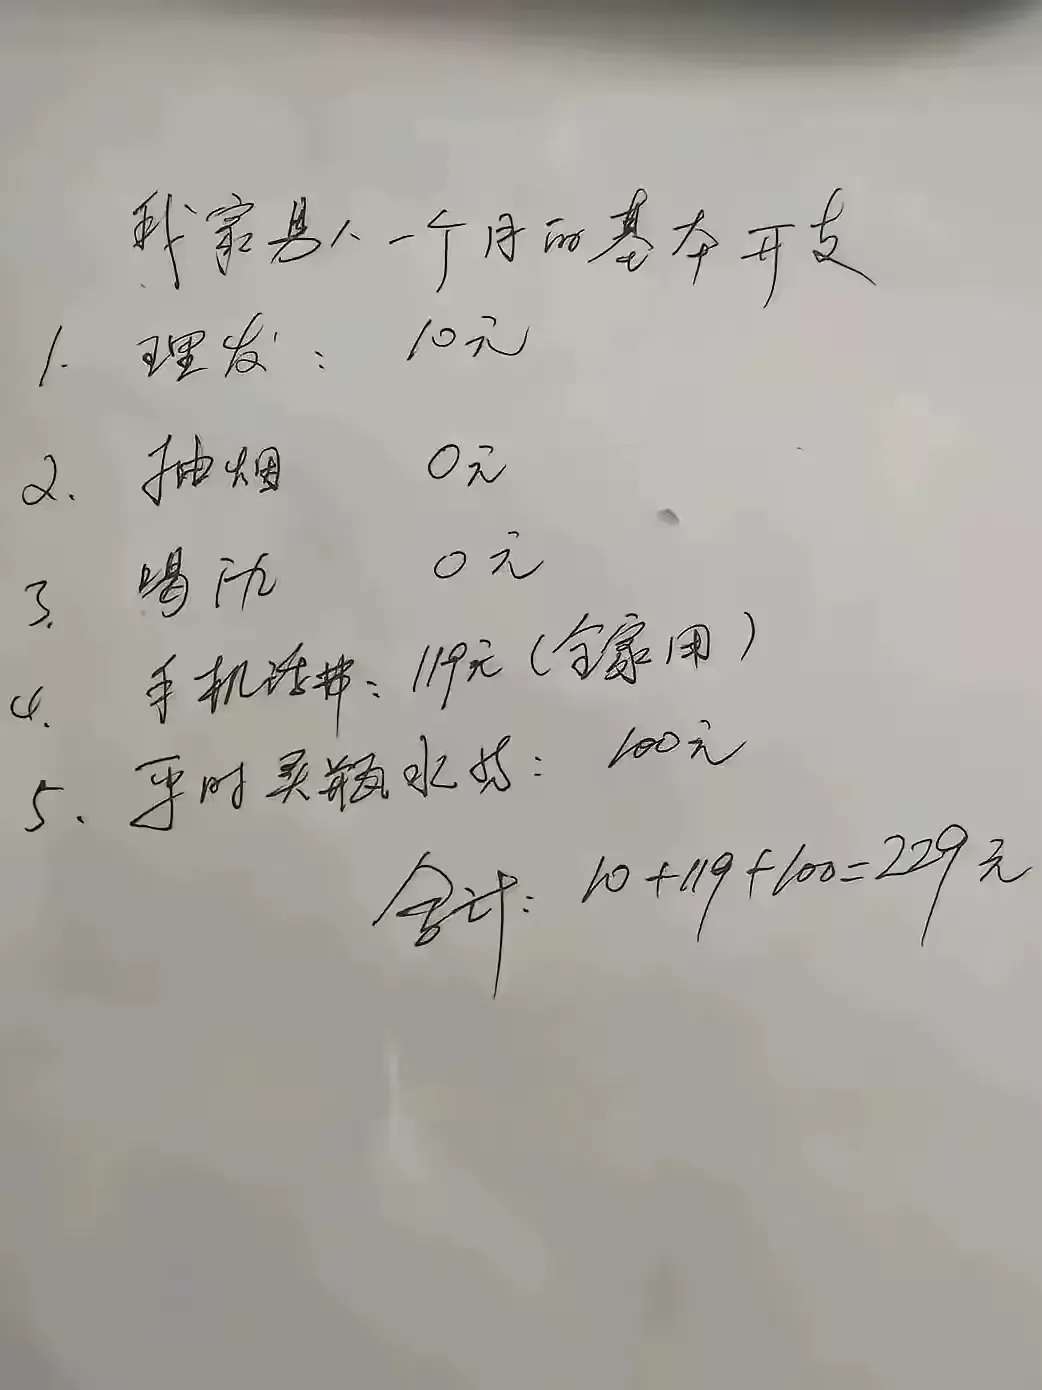 我家男人一个月的基本开支
1. 理发: 10元
2. 抽烟 0元
3. 喝酒 0元
4. 手机话费: 119元(全家用)
5. 平时买瓶水等: 100元
合计: 10+119+100=229元